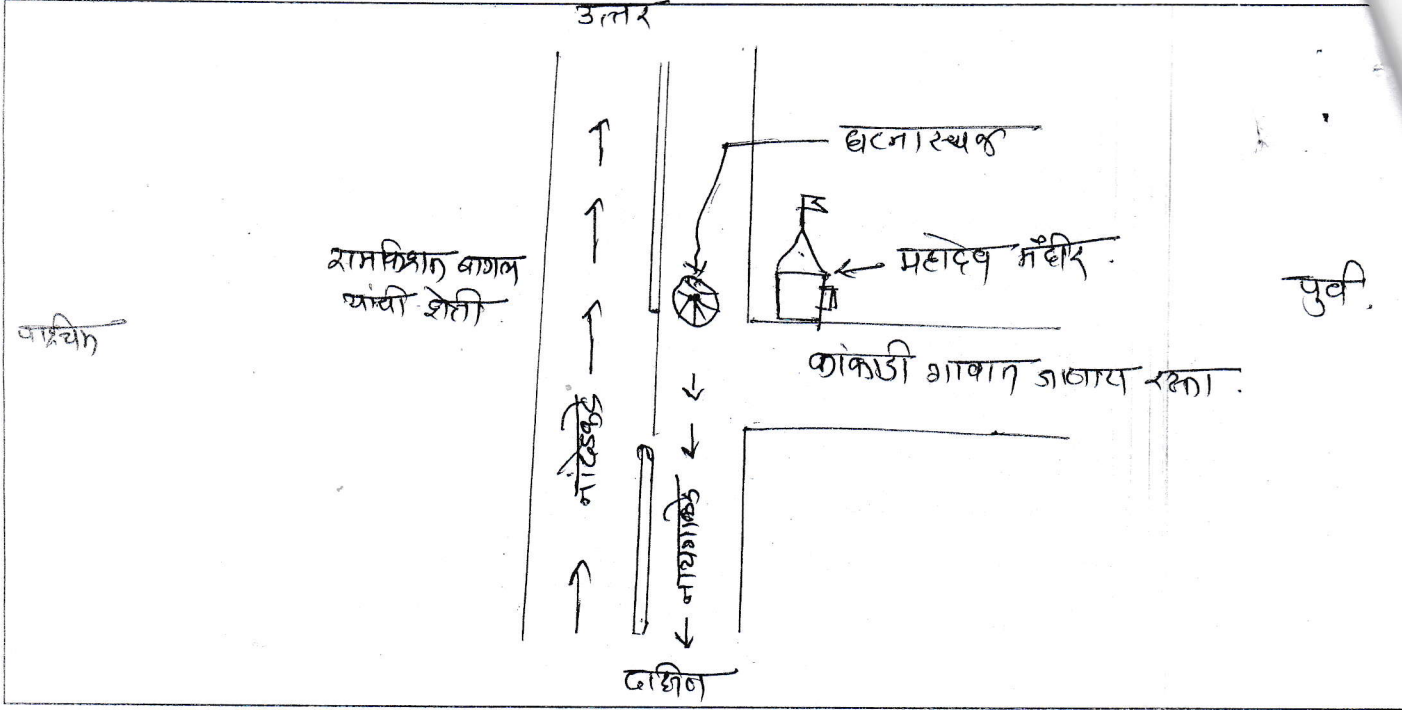 उत्तर
घटनास्थळ
रामकिशन बागल
यांची शेती.
महादेव मंदीर.
पुर्व.
पश्चिम
कांकाडी गावात जाणारा रस्ता.
नांदेडकडे
नायगांवकडे
दक्षिण